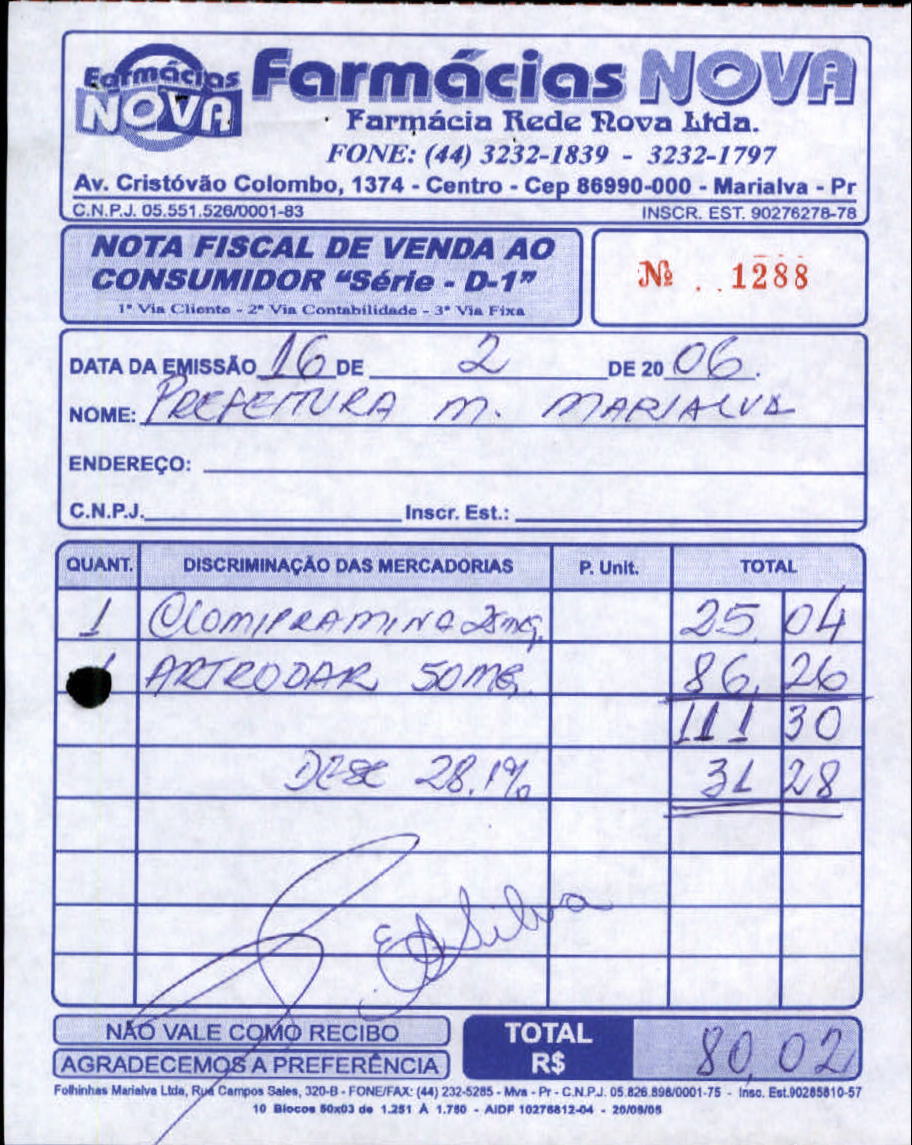 Farmácias NOVA
Farmácias NOVA
Farmácia Rede Nova Ltda.
FONE: (44) 3232-1839 - 3232-1797
Av. Cristóvão Colombo, 1374 - Centro - Cep 86990-000 - Marialva - Pr
C.N.P.J. 05.551.526/0001-83 INSCR. EST. 90276278-78
NOTA FISCAL DE VENDA AO
CONSUMIDOR "Série - D-1"
1ª Via Cliente - 2ª Via Contabilidade - 3ª Via Fixa
Nº 1288
DATA DA EMISSÃO 16 DE 2 DE 20 06.
NOME: PREFEITURA M. MARIALVA
ENDEREÇO:
C.N.P.J. Inscr. Est.:
QUANT. DISCRIMINAÇÃO DAS MERCADORIAS P. Unit. TOTAL
1 CLOMIPRAMINA 25mg 25,04
ARTRODAR 50MG. 86,26
111 30
DESC 28,1% 31 28
EASilva
NÃO VALE COMO RECIBO
AGRADECEMOS A PREFERÊNCIA
TOTAL
R$ 80,02
Folhinhas Marialva Ltda, Rua Campos Sales, 320-B - FONE/FAX: (44) 232-5285 - Mva - Pr - C.N.P.J. 05.826.898/0001-75 - Insc. Est.90265810-57
10 Blocos 50x03 de 1.251 À 1.750 - AIDF 10276812-04 - 20/09/05